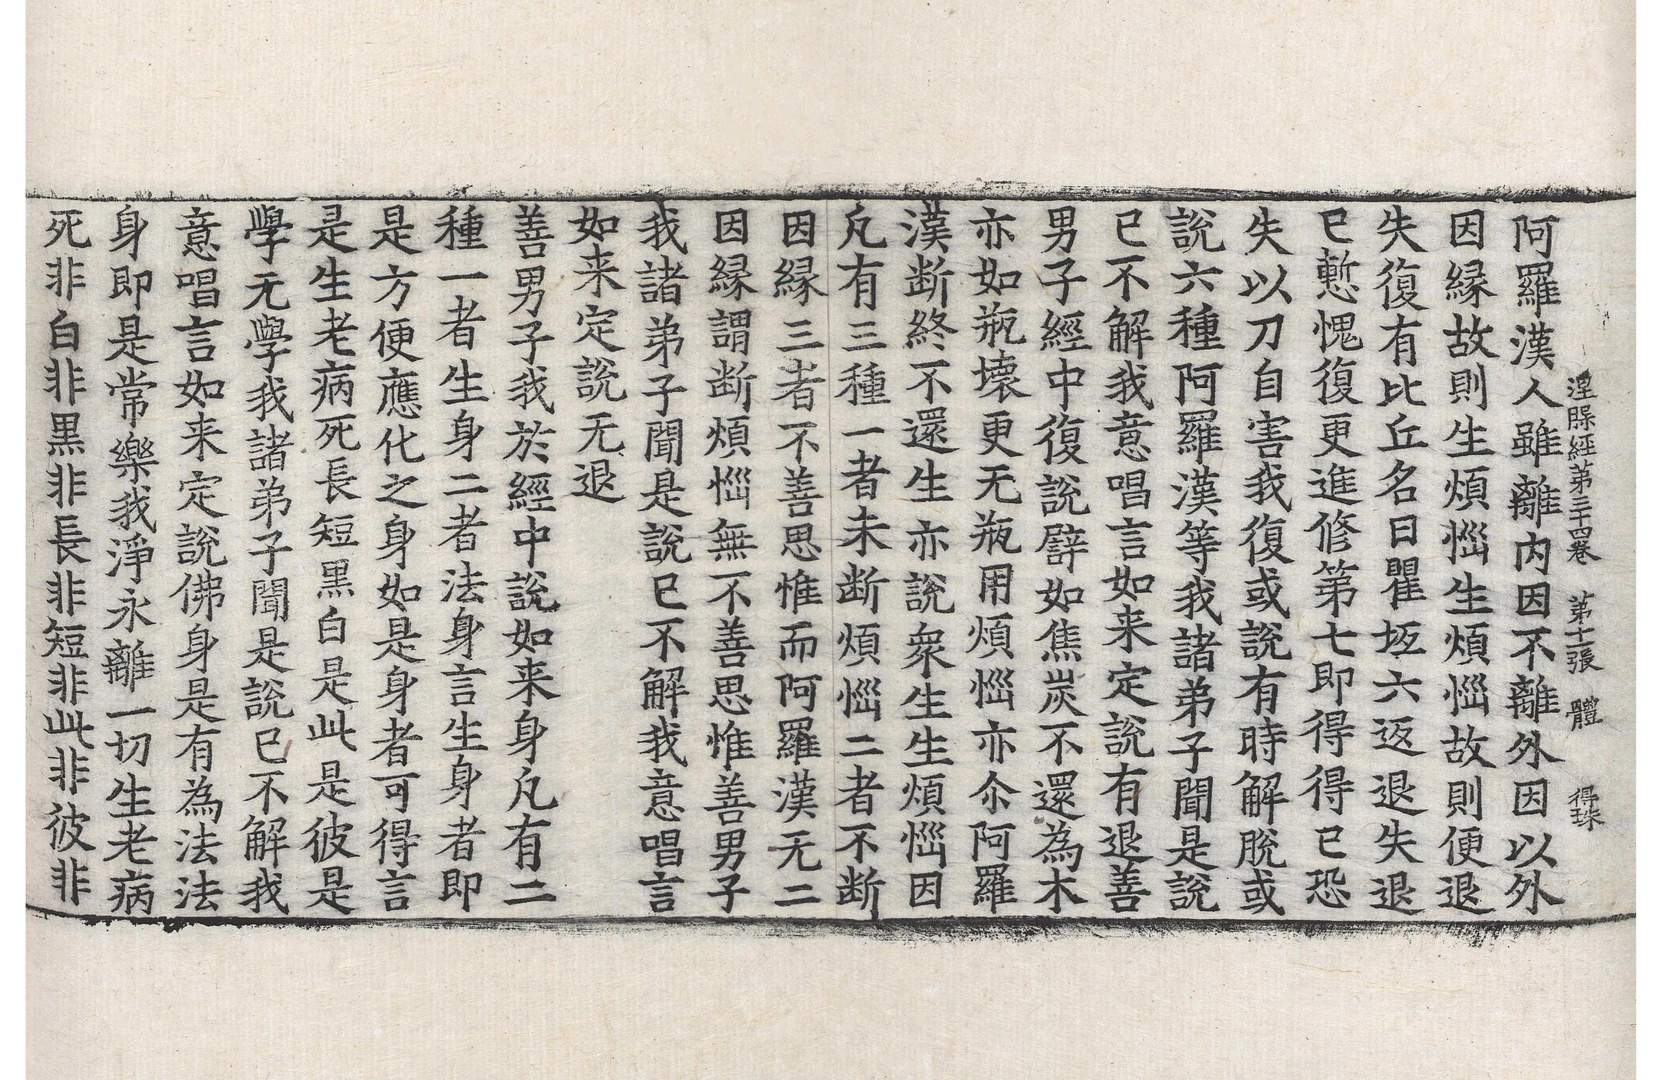 涅槃經第三十四卷　第十一張　體　得珠
阿羅漢人雖離内因不離外因以外
因縁故則生煩惱生煩惱故則便退
失復有比丘名曰瞿坻六返退失退
已慙愧復更進修第七即得得已恐
失以刀自害我復或說有時解脫或
說六種阿羅漢等我諸弟子聞是說
已不解我意唱言如来定說有退善
男子經中復說譬如焦炭不還為木
亦如瓶壞更无瓶用煩惱亦尒阿羅
漢断終不還生亦說衆生生煩惱因
凡有三種一者未断煩惱二者不断
因縁三者不善思惟而阿羅漢无二
因縁謂断煩惱無不善思惟善男子
我諸弟子聞是說已不解我意唱言
如来定說无退
善男子我於經中說如来身凡有二
種一者生身二者法身言生身者即
是方便應化之身如是身者可得言
是生老病死長短黒白是此是彼是
學无學我諸弟子聞是說已不解我
意唱言如来定說佛身是有為法法
身即是常樂我淨永離一切生老病
死非白非黒非長非短非此非彼非